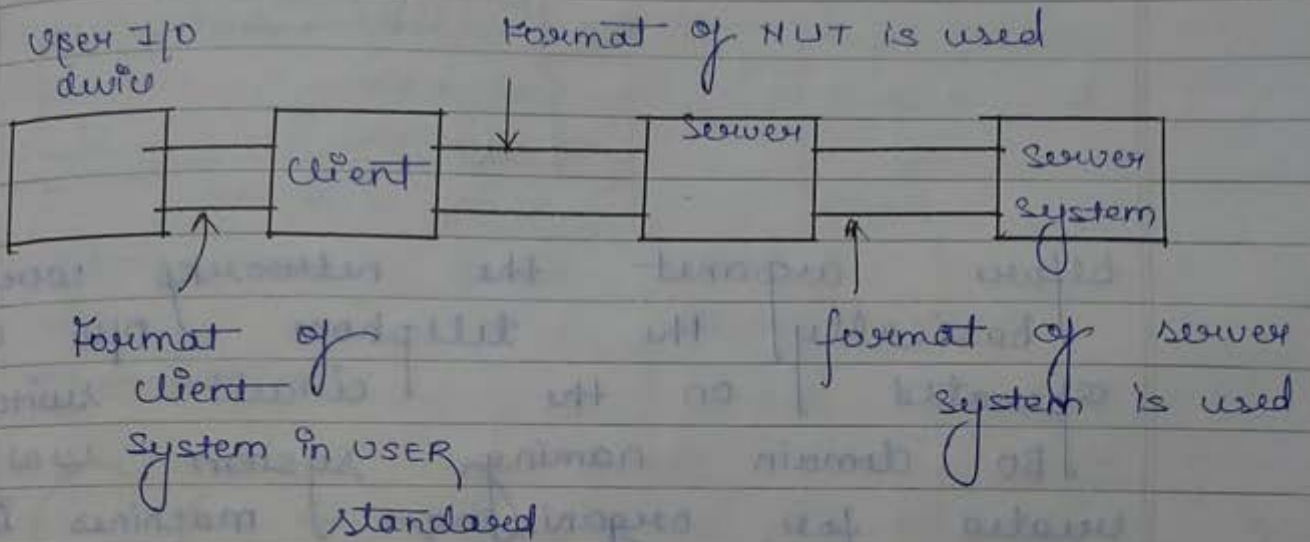 User I/O
device
Format of NUT is used
Client
Server
Server
System
Format of
client
system in USER
standard
format of server
system is used